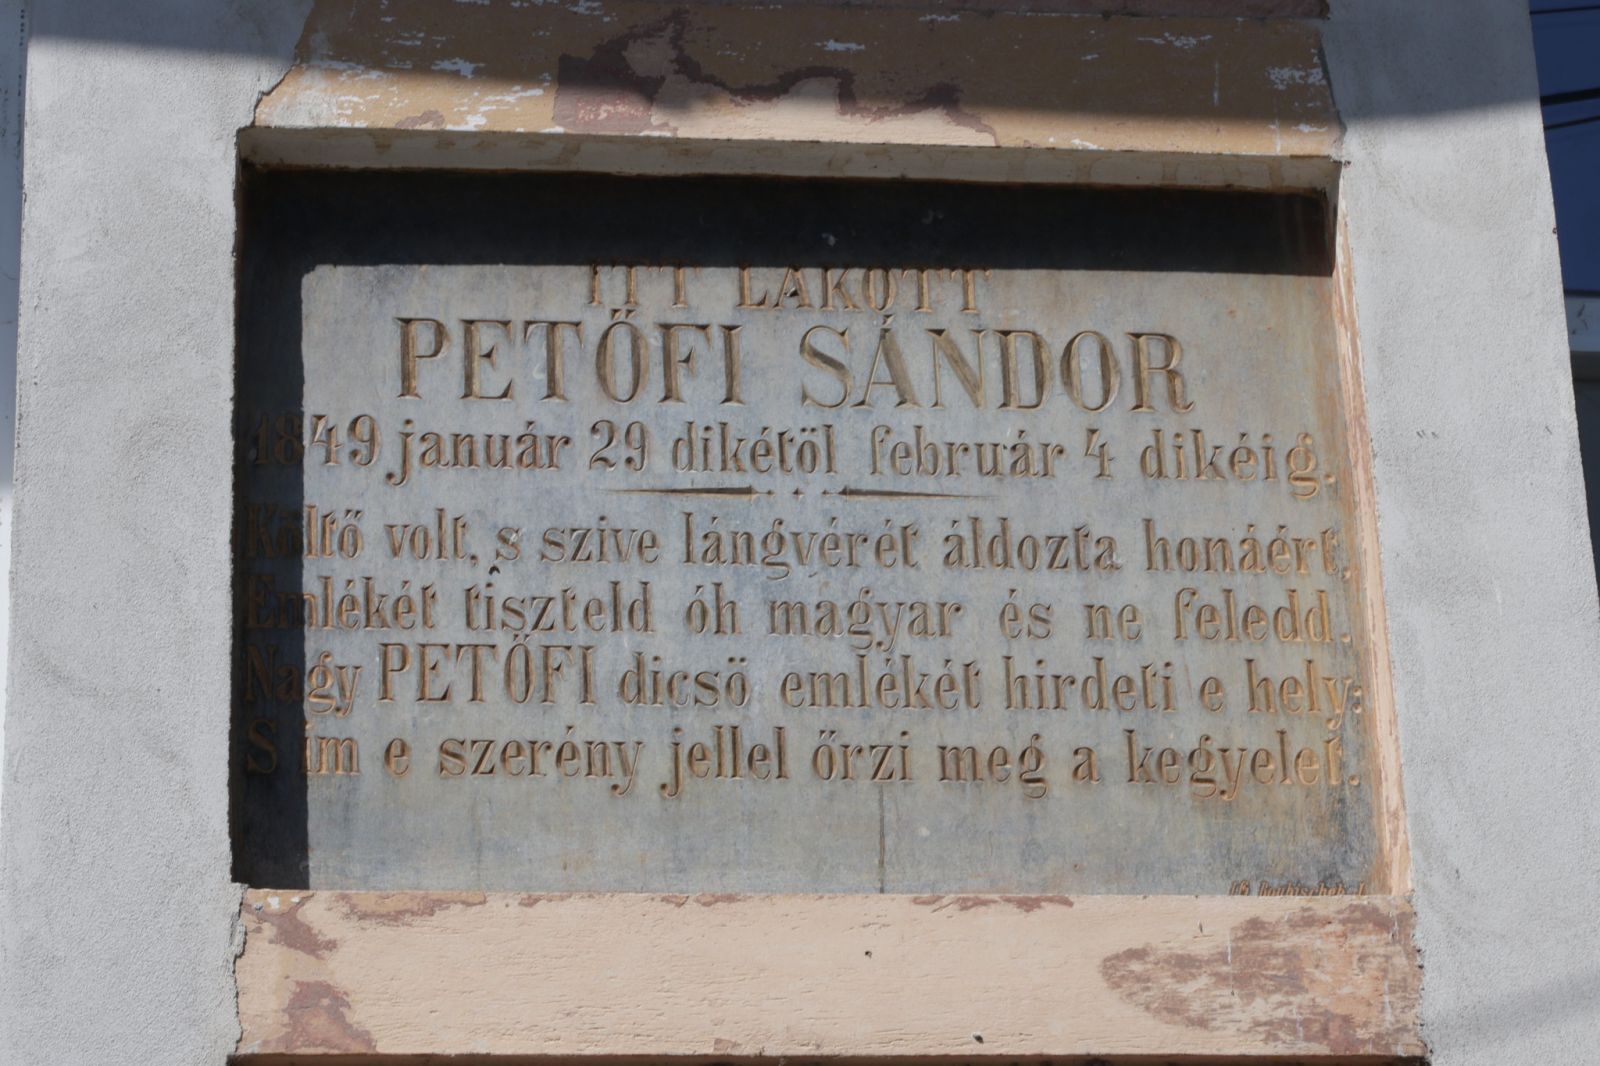 ITT LAKOTT
PETŐFI SÁNDOR
1849 január 29 dikétöl február 4 dikéig.
Költő volt, s szive lángvérét áldozta honáért,
Emlékét tiszteld óh magyar és ne feledd.
Nagy PETŐFI dicsö emlékét hirdeti e hely:
S im e szerény jellel őrzi meg a kegyelet.